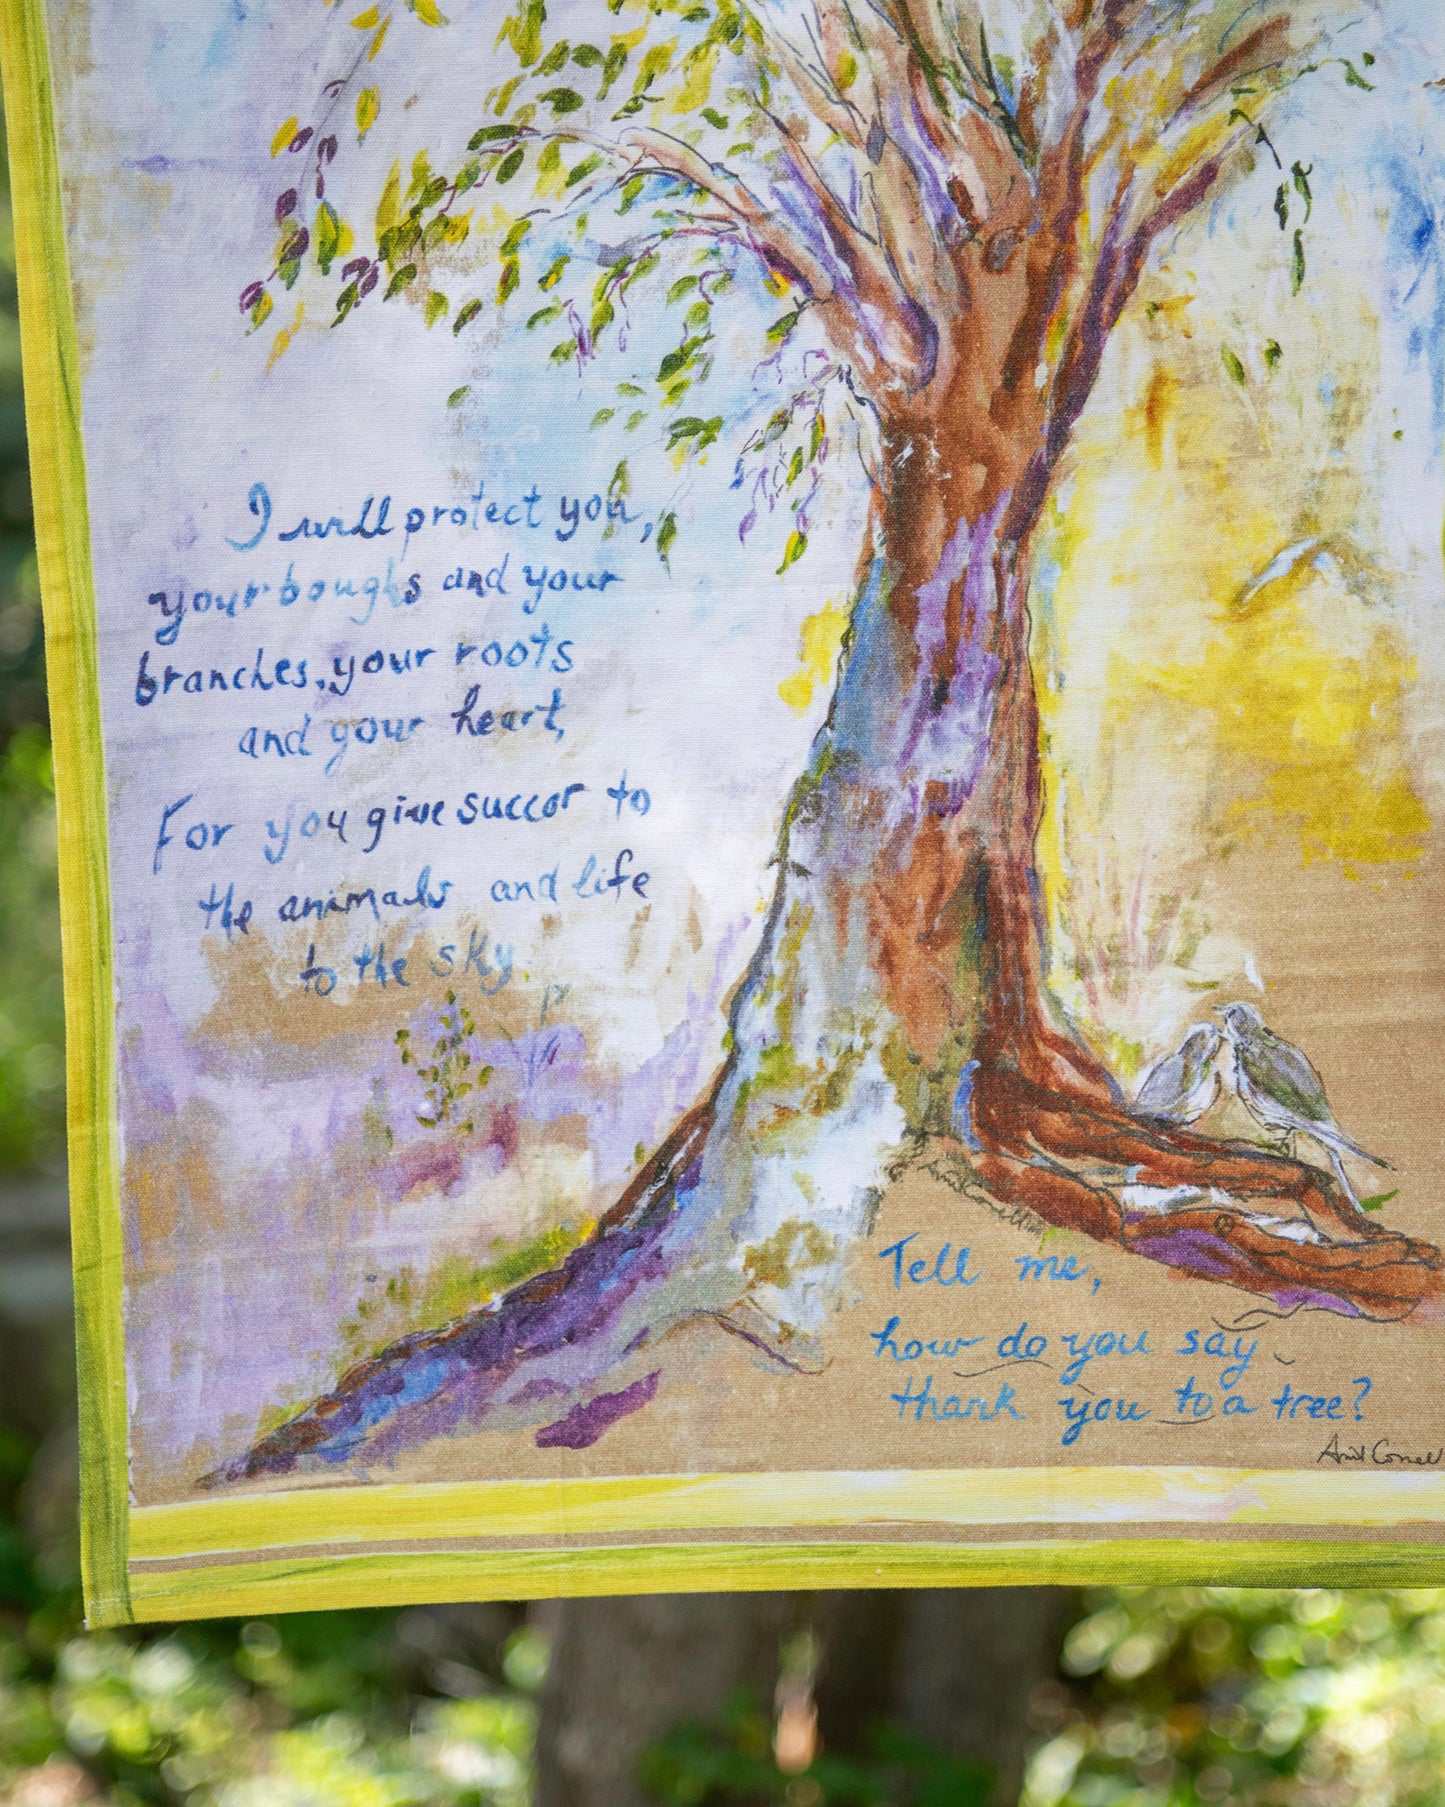 I will protect you,
your boughs and your
branches, your roots
and your heart,
For you give succor to
the animals and life
to the sky
Tell me,
how do you say
thank you to a tree?